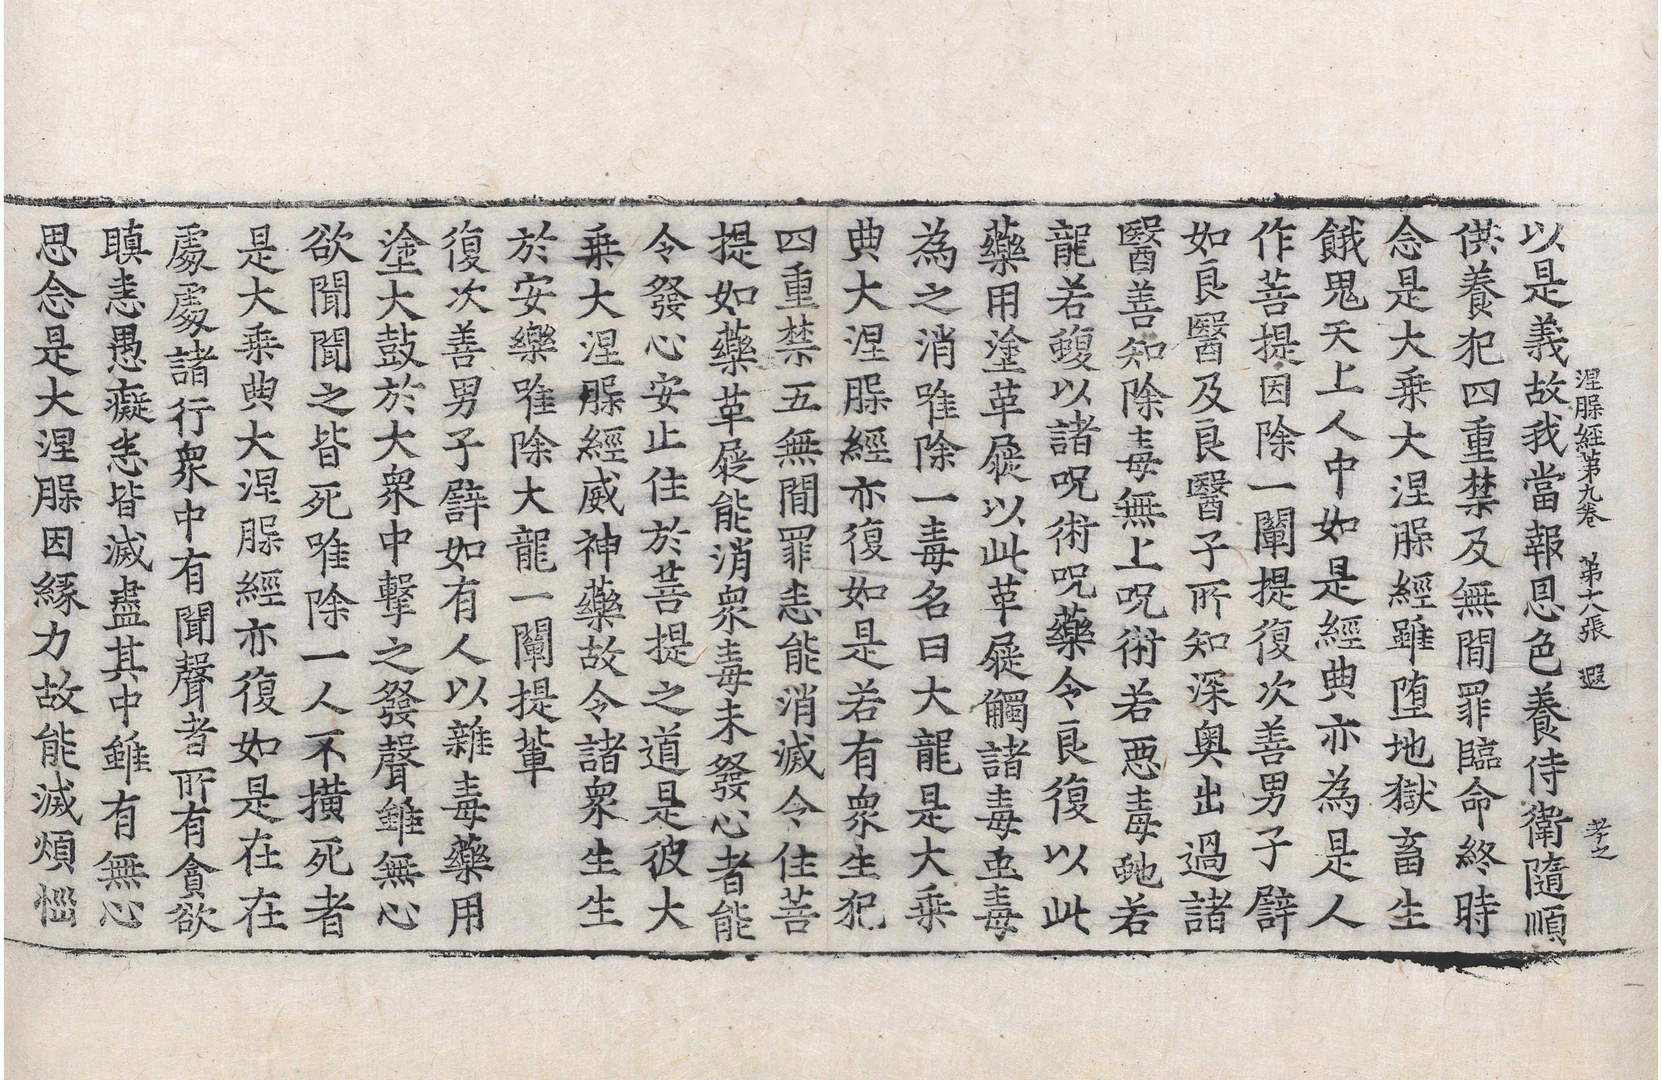 涅槃經第九卷 第十六張 遐 孝之
以是義故我當報恩色養侍衛隨順
供養犯四重禁及無間罪臨命終時
念是大乘大涅槃經雖墮地獄畜生
餓鬼天上人中如是經典亦為是人
作菩提因除一闡提復次善男子譬
如良醫及良醫子所知深奧出過諸
醫善知除毒無上呪術若惡毒虵若
龍若蝮以諸呪術呪藥令良復以此
藥用塗革屣以此革屣觸諸毒虫毒
為之消唯除一毒名曰大龍是大乘
典大涅槃經亦復如是若有眾生犯
四重禁五無間罪悉能消滅令住菩
提如藥革屣能消眾毒未發心者能
令發心安止住於菩提之道是彼大
乘大涅槃經威神藥故令諸眾生生
於安樂唯除大龍一闡提輩
復次善男子譬如有人以雜毒藥用
塗大鼓於大眾中擊之發聲雖無心
欲聞聞之皆死唯除一人不橫死者
是大乘典大涅槃經亦復如是在在
處處諸行眾中有聞聲者所有貪欲
瞋恚愚癡悉皆滅盡其中雖有無心
思念是大涅槃因緣力故能滅煩惱